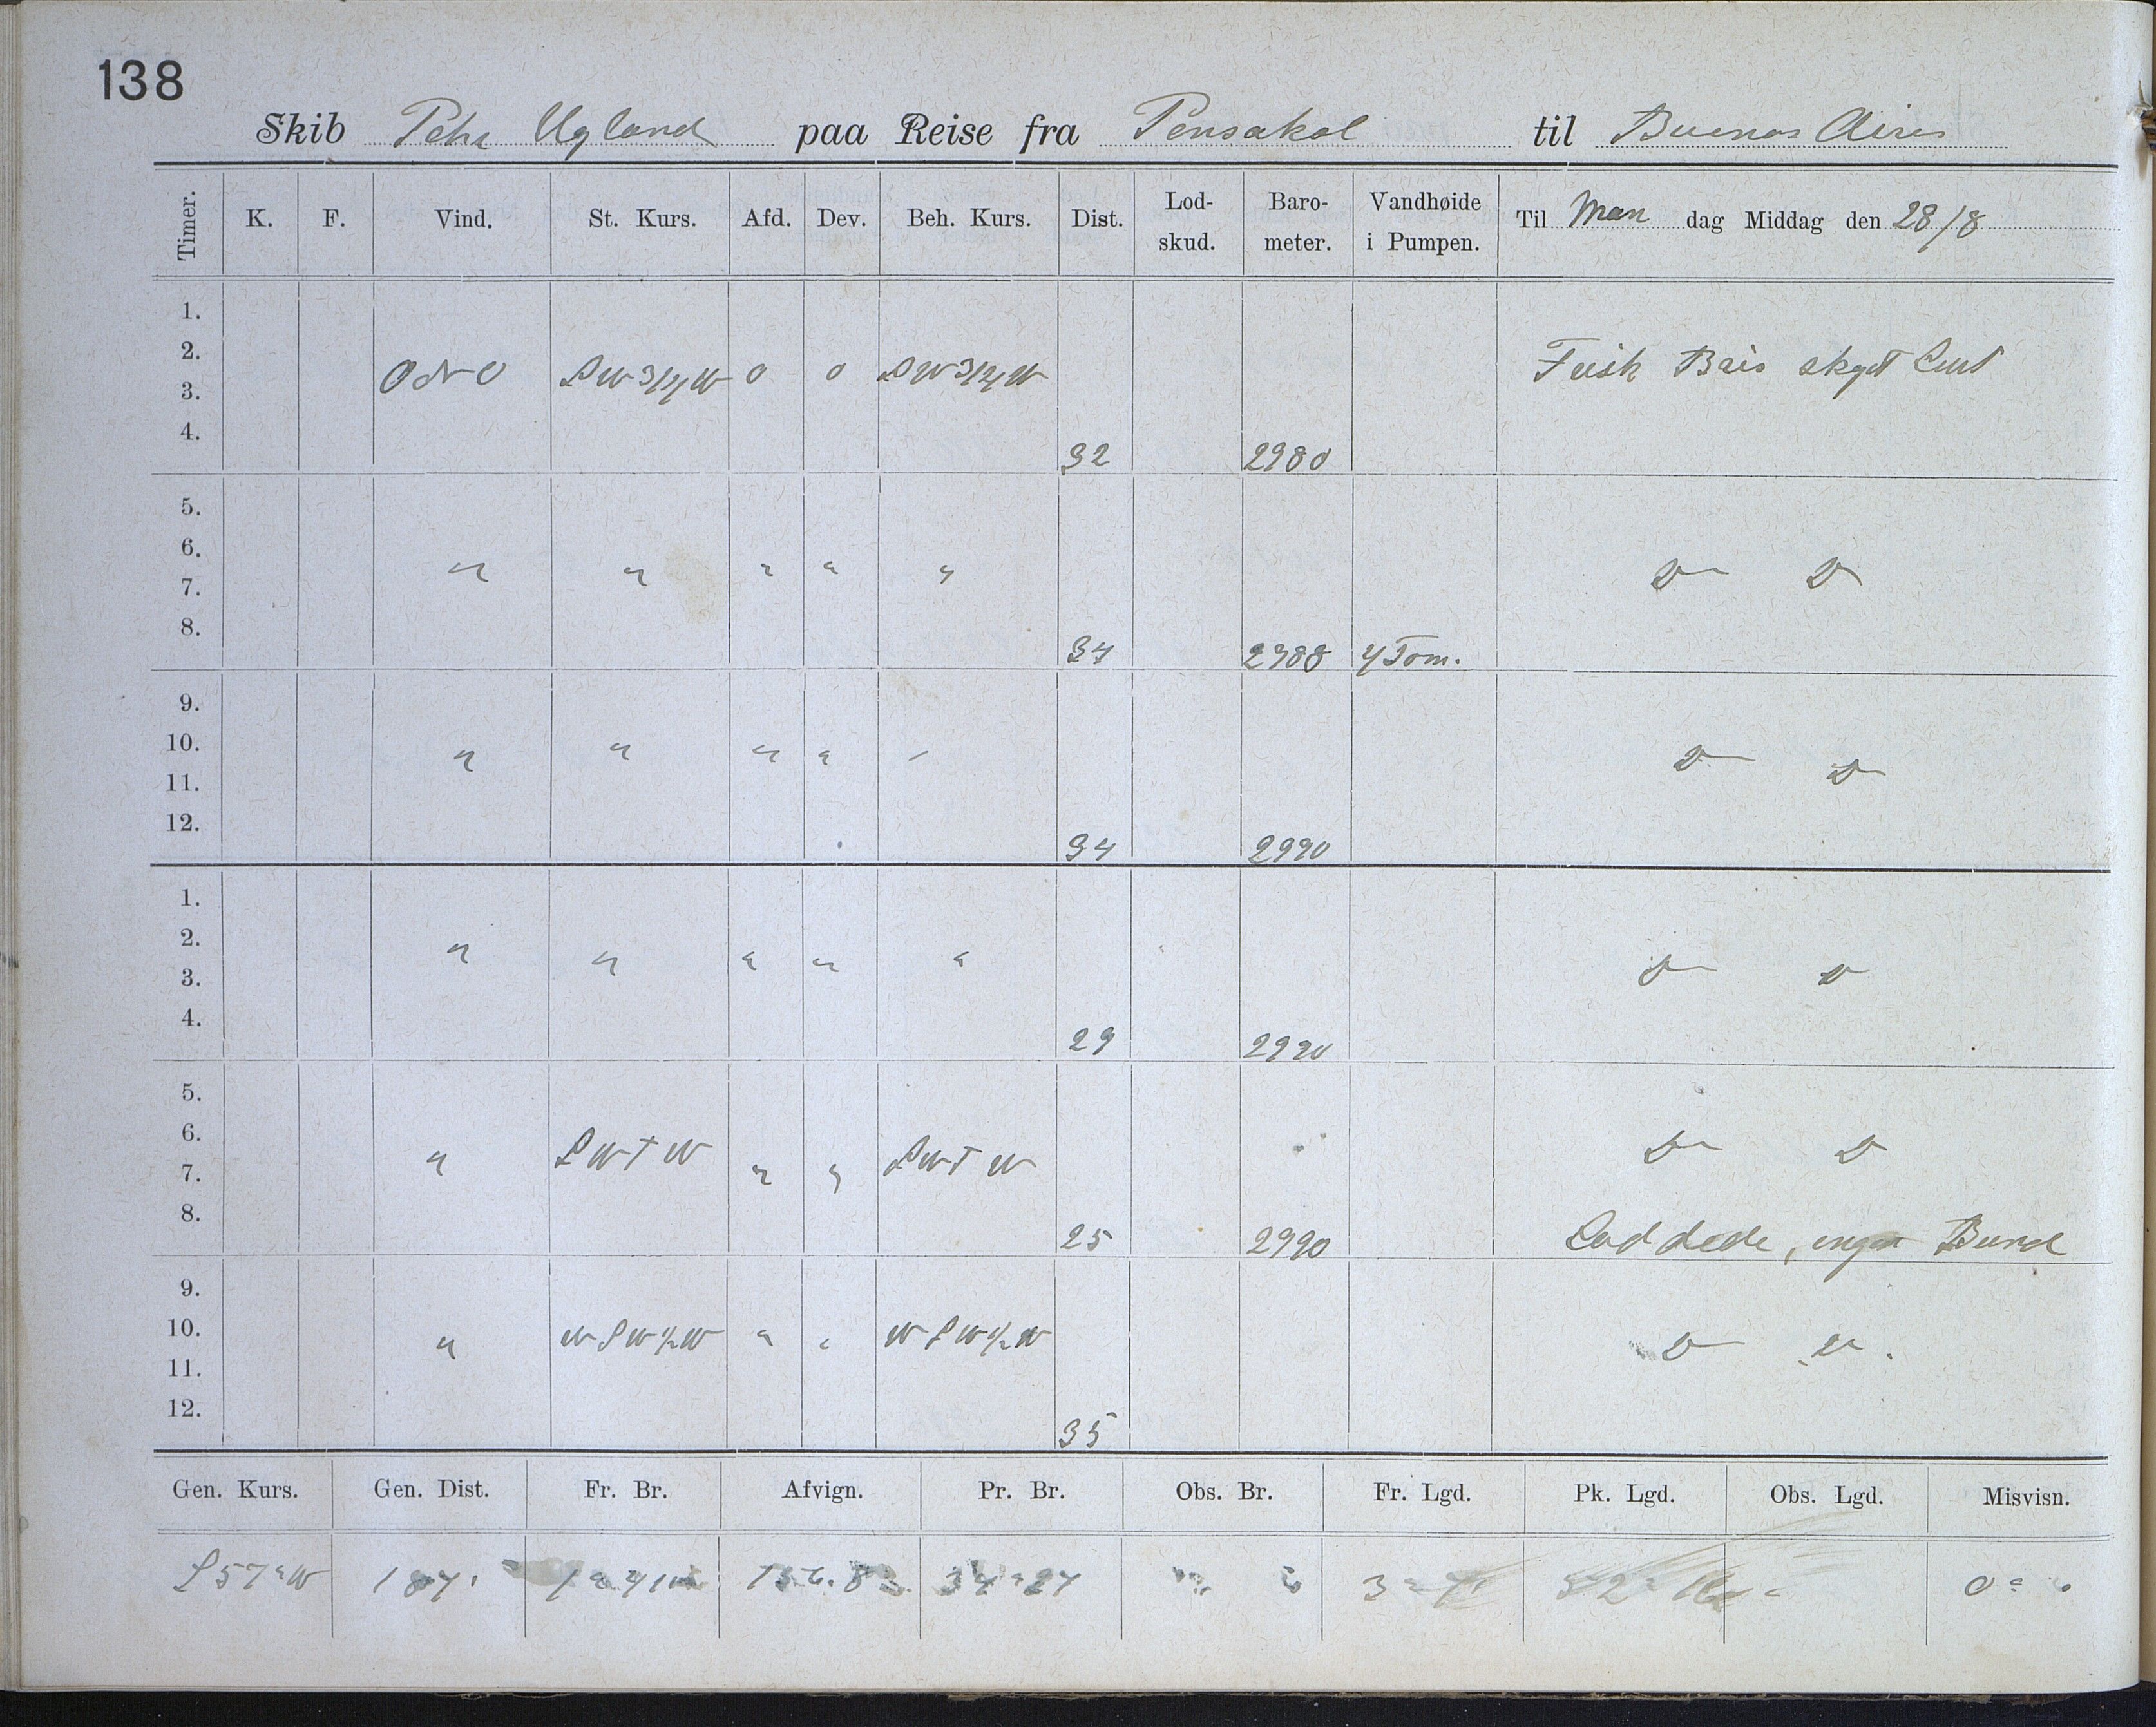 138
Skib Pehr Ugland paa Reise fra Pensakol til Buenos Aires
Timer. K. F. Vind. St. Kurs. Afd. Dev. Beh. Kurs. Dist. Lod-skud. Baro-meter. Vandhøide i Pumpen. Til Man dag Middag den 28/8
1.
2.
3. ONO SW3/4W 0 0 SW3/4W Frisk Bris skyet Luft
4. 32 2980
5.
6.
7. " " " " " D D
8. 34 2988 4 Tom.
9.
10. " " " " " D D
11.
12. 34 2990
1.
2.
3. " " " " " D D
4. 29 2990
5.
6.
7. " SWTW " " SWTW D D
8. 25 2990 Loddede, ingen Bund
9.
10. " WSW1/2W " " WSW1/2W D D
11.
12. 35
Gen. Kurs. Gen. Dist. Fr. Br. Afvign. Pr. Br. Obs. Br. Fr. Lgd. Pk. Lgd. Obs. Lgd. Misvisn.
S57°W 187' 34°27